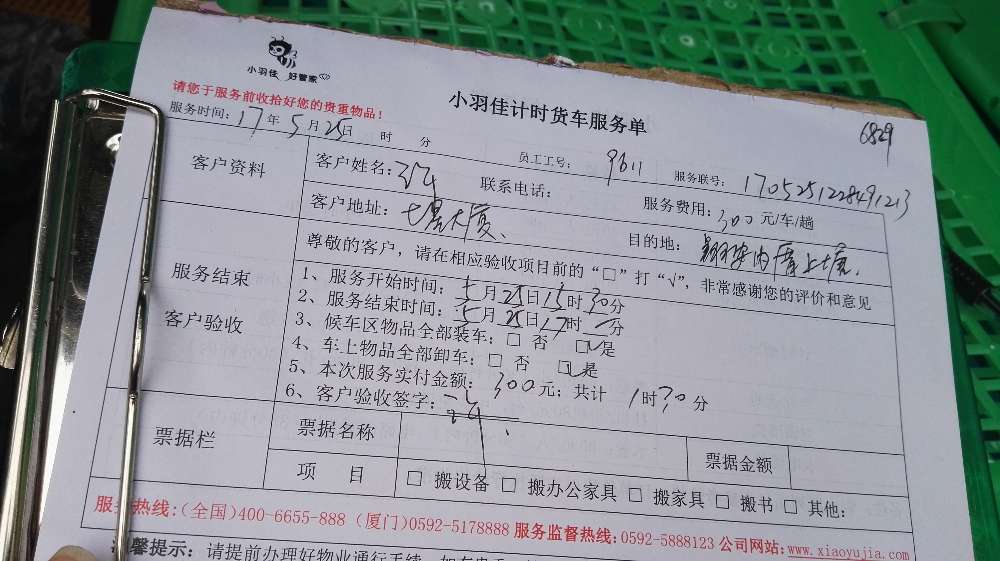 小羽佳 好管家
请您于服务前收拾好您的贵重物品！
小羽佳计时货车服务单
6829
服务时间：17年5月25日 时 分
员工工号： 9611 服务联号： 1705251228491213
客户资料
客户姓名： 联系电话： 服务费用：300元/车/趟
客户地址： 大厦、 目的地：
服务结束
客户验收
尊敬的客户，请在相应验收项目前的“□”打“√”，非常感谢您的评价和意见
1、服务开始时间：5月25日15时30分
2、服务结束时间：5月25日17时 分
3、候车区物品全部装车：□ 否 □是
4、车上物品全部卸车；□ 否 □是
5、本次服务实付金额：300元；共计 1时30分
6、客户验收签字：
票据栏
票据名称 票据金额
项 目 □ 搬设备 □ 搬办公家具 □ 搬家具 □ 搬书 □ 其他：
服务热线：(全国)400-6655-888 (厦门)0592-5178888 服务监督热线：0592-5888123 公司网站：www.xiaoyujia.com
温馨提示：请提前办理好物业通行手续，如有贵